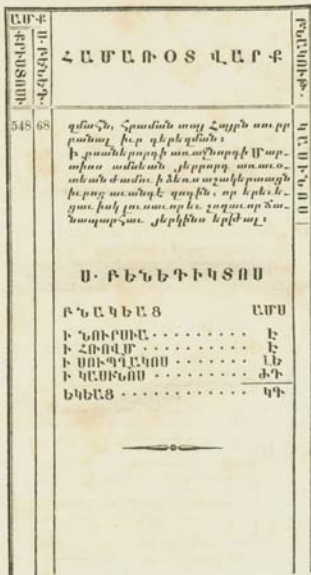 ԱՄ·Ք
ՔՐԻՍՏՈՍԻ·
Ս·ԲԵՆԵԴ·
ՀԱՄԱՌՕՏ ՎԱՐՔ
ԲՆԱԿՈՒԹԻ·
548 68
զմահն, Հրաման տայ Հայրն սուրբ
բանալ իւր գերեզման։
Ի քսաներորդի առաջնորդի Մար-
տիոս ամսեան յերրորդ առաւօ-
տեան ժամու ի ձեռս աշակերտացն
իւրոց աւանդէ զոգին, որ երեւե-
ցաւ իսկ լուսաւոր եւ շողաւոր ճա-
նապարհաւ յերկինս երթալ։
ԿԱՍԻՆՈՍ
Ս· ԲԵՆԵԴԻԿՏՈՍ
ԲՆԱԿԵԱՑ ԱՄՍ
Ի ՆՈՒՐՍԻԱ · · · · · · · · · Է
Ի ՀՌՈՎՄ · · · · · · · · · · Է
Ի ՍՈՒՊՂԱԿՈՍ · · · · · · · ԼԵ
Ի ԿԱՍԻՆՈՍ · · · · · · · · ԺԴ
ԵԿԵԱՑ · · · · · · · · · · · ԿԳ